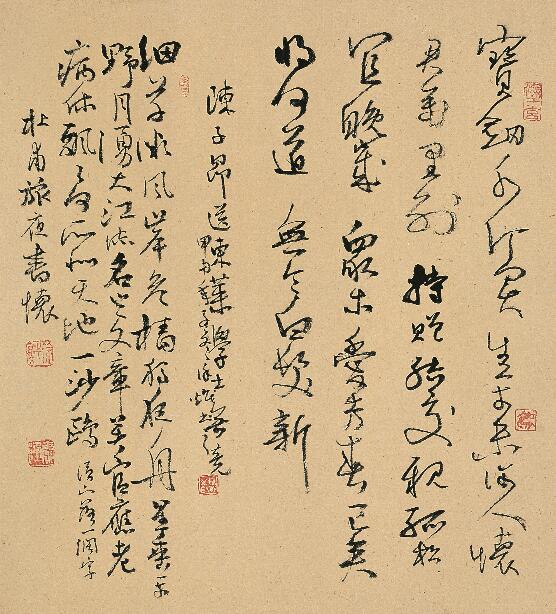 寶劍千金買生平未許人懷
君萬里別持贈結交親孤松
宜晚歲眾木愛芳春已矣
將何道無令白髮新
陳子昂送東萊學士無競
細草微風岸危檣獨夜舟星垂平
野月湧大江流名豈文章著官應老
病休飄々何所似天地一沙鷗
落一闊字
杜甫旅夜書懷